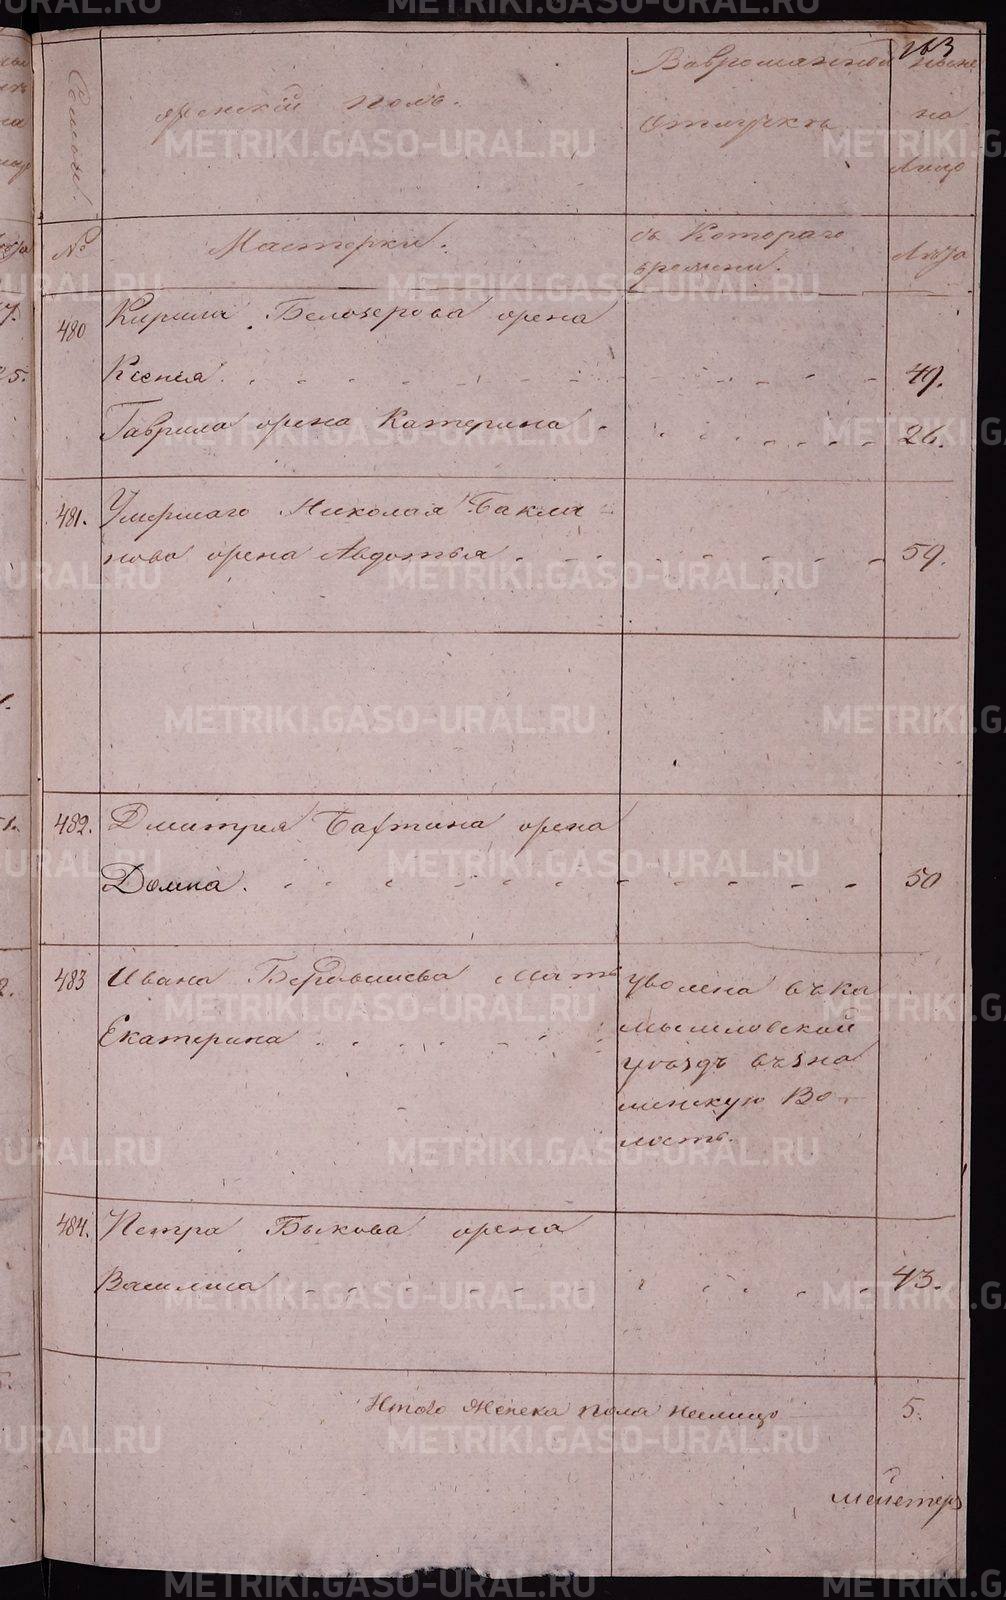 163
Семьи.
женский полъ.
Вовременной
отлучкѣ
ныне
на
Лицо
№
Мастерки.
съ Котораго
времени.
Лѣта
480
Кирила Белозерова жена
Ксения
49.
Гаврила жена Катерина
26.
481.
Умершаго Николая Бакла
нова жена Авдотья
59.
482.
Дмитрея Бафтина жена
Домна.
50
483
Ивана Бердышева Мать
Екатерина
уволена въ Ка
мышловской
уѣздъ въ Зна
менскую Во-
лость.
484.
Петра Быкова жена
Василиса
43.
Итого Женска пола налицо
5.
METRIKI.GASO-URAL.RU